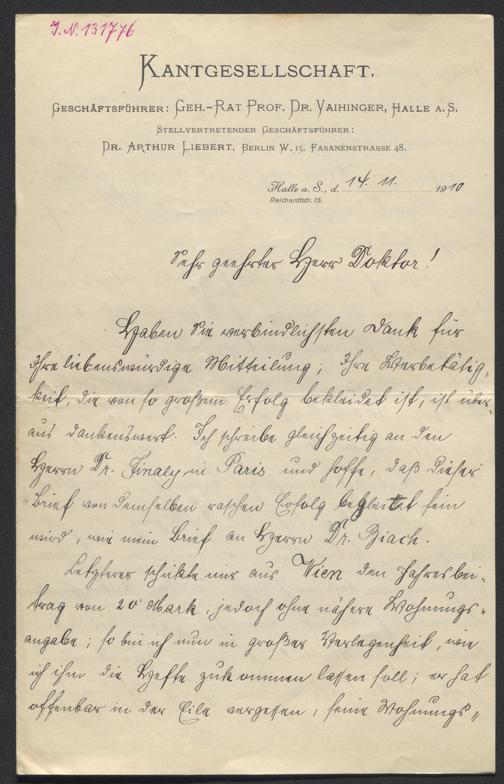 J.N.131776
KANTGESELLSCHAFT.
GESCHÄFTSFÜHRER: GEH.-RAT PROF. DR. VAIHINGER, HALLE A. S.
STELLVERTRETENDER GESCHÄFTSFÜHRER:
DR. ARTHUR LIEBERT, BERLIN W. 15, FASANENSTRASSE 48.
Halle a. S., d. 14. 11. 1910
Reichardtstr. 15.
Sehr geehrter Herr Doktor!
Haben Sie verbindlichsten Dank für
Ihre liebenswürdige Mitteilung; Ihre Werbetätig-
keit, die von so großem Erfolg bekleidet ist, ist über-
aus dankenswert. Ich schreibe gleichzeitig an den
Herrn Dr. Finaly in Paris und hoffe, daß dieser
Brief von demselben raschen Erfolg begleitet sein
wird, wie mein Brief an Herrn Dr. Biach.
Letzterer schickte mir aus Wien den Jahresbei-
trag von 20 Mark, jedoch ohne nähere Wohnungs-
angabe; so bin ich nun in großer Verlegenheit, wie
ich ihm die Hefte zukommen lassen soll; er hat
offenbar in der Eile vergessen, seine Wohnungs-